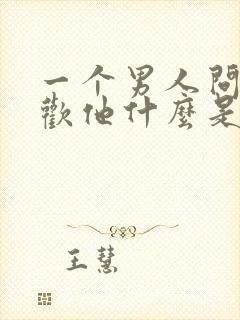 一个男人問
歡他什麼是
王慧